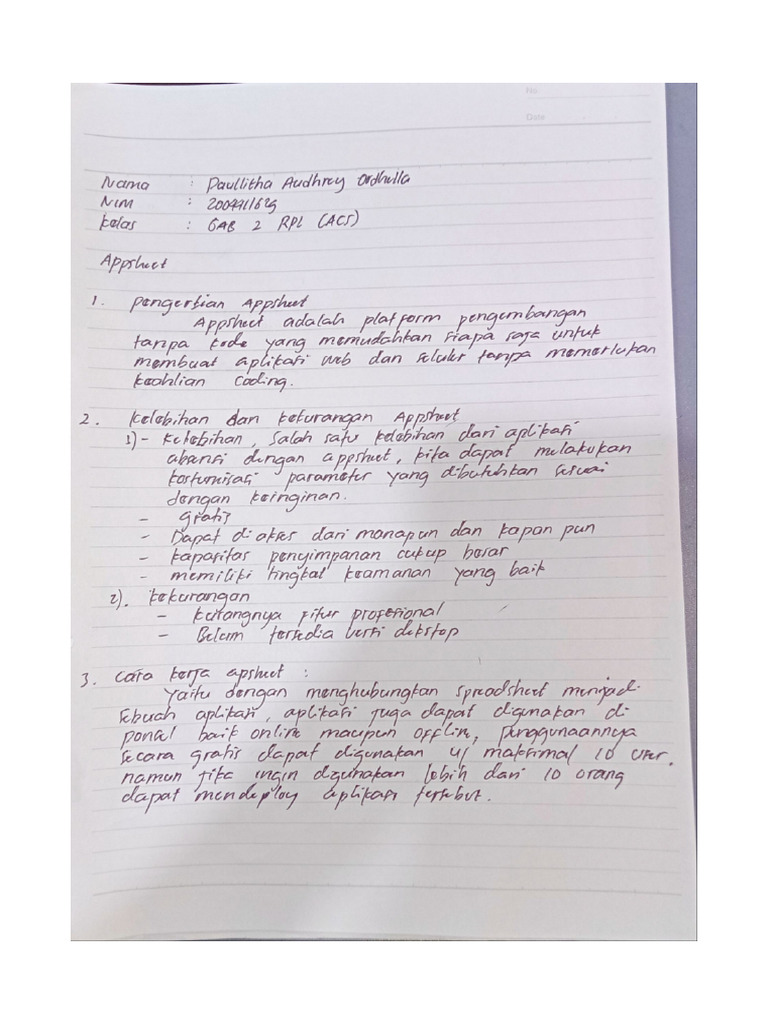 No
Date
Nama : Paullitha Audhrey Ordhella
NIM : 2009911629
Kelas : GAB 2 RPL (ACS)
Appsheet
1. Pengertian Appsheet
Appsheet adalah platform pengembangan
tanpa kode yang memudahkan siapa saja untuk
membuat aplikasi web dan seluler tanpa memerlukan
keahlian coding.
2. Kelebihan dan kekurangan Appsheet
1) - Kelebihan, Salah satu kelebihan dari aplikasi
absensi dengan appsheet, kita dapat melakukan
kostumisasi parameter yang dibutuhkan sesuai
dengan keinginan.
- Gratis
- Dapat di akses dari manapun dan kapan pun
- kapasitas penyimpanan cukup besar
- memiliki tingkat keamanan yang baik
2). kekurangan
- kurangnya fitur profesional
- Belum tersedia versi dekstop
3. Cara kerja apsheet :
Yaitu dengan menghubungkan spreadsheet menjadi
sebuah aplikasi, aplikasi juga dapat digunakan di
ponsel baik online maupun offline, penggunaannya
secara gratis dapat digunakan u/ maksimal 10 user.
namun jika ingin digunakan lebih dari 10 orang
dapat mendeploy aplikasi tersebut.